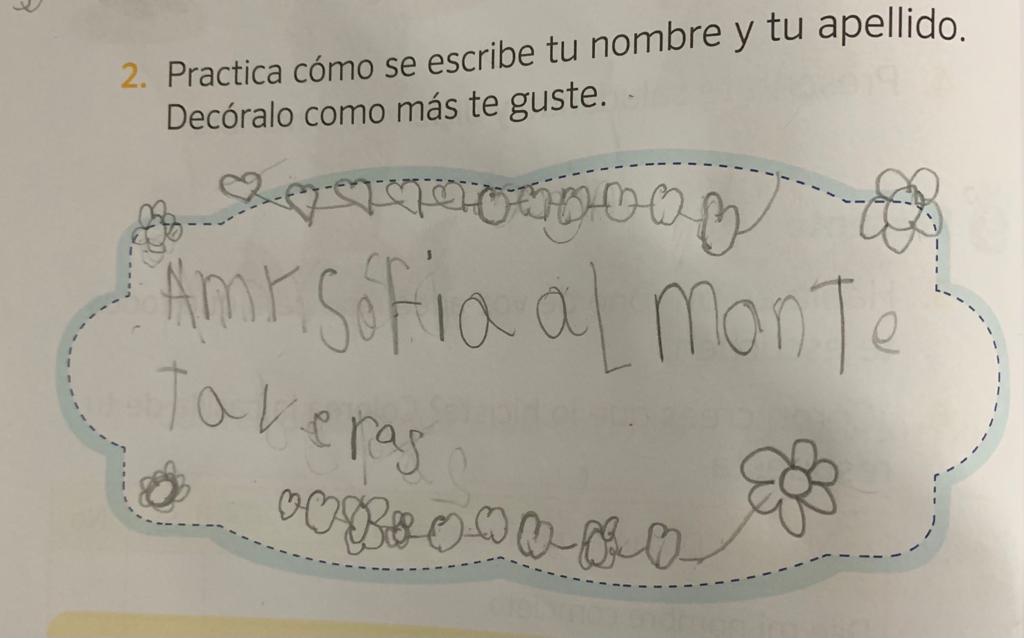 2. Practica cómo se escribe tu nombre y tu apellido.
Decóralo como más te guste.
Amr, Sofia al monTe
Taveras